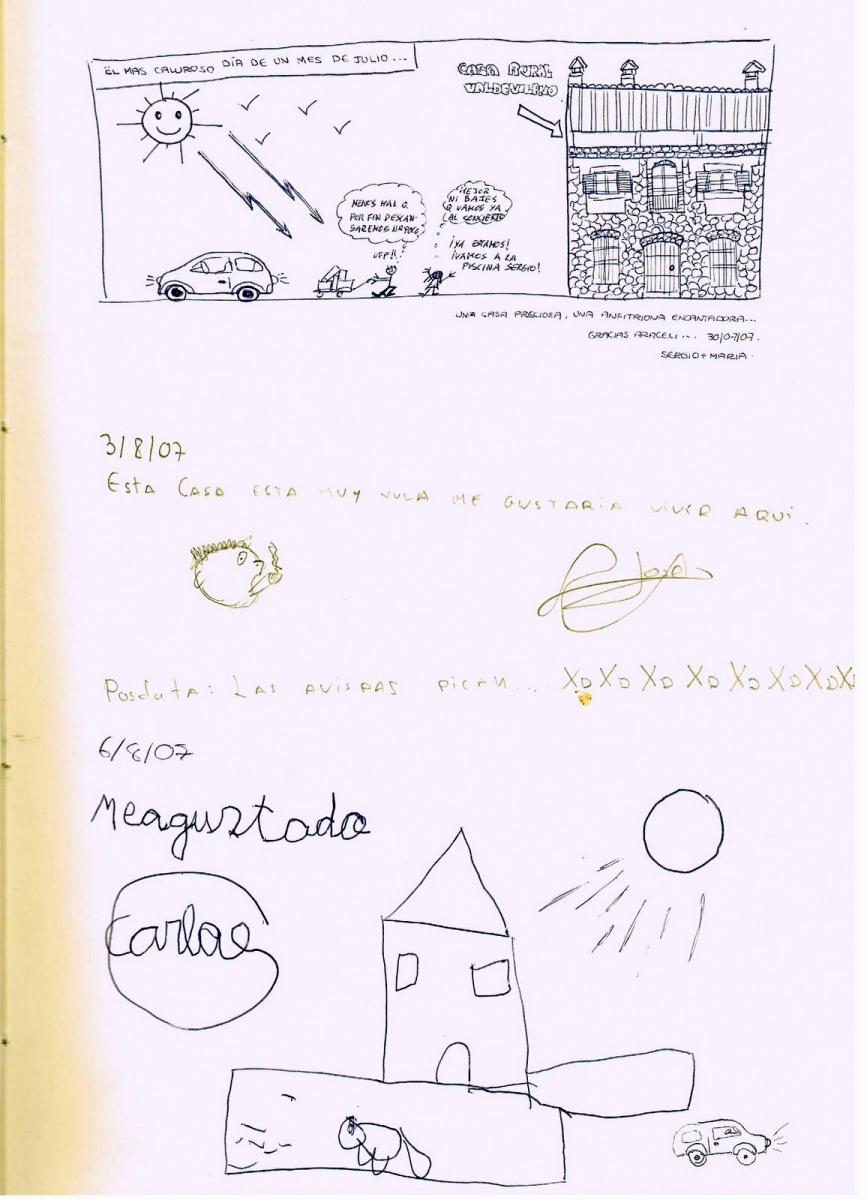 EL MAS CALUROSO DÍA DE UN MES DE JULIO...
CASA RURAL
VALDEVILANO
MENOS MAL Q.
POR FIN DESCAN-
SAREMOS UN POCO
UFF!!
MEJOR
NI BAJES
Q VAMOS YA
AL CONCIERTO
¡YA ESTAMOS!
¡VAMOS A LA
PISCINA SERGIO!
UNA CASA PRECIOSA, UNA ANFITRIONA ENCANTADORA...
GRACIAS ARACELI... 30/07/07.
SERGIO + MARIA.
3/8/07
ESTA CASA ESTA MUY XULA ME GUSTARIA VIVIR AQUI.
Jose
Posdata: LAS AVISPAS PICAN.... XD XD XD XD XD XD XD XD
6/8/07
Meagustado
Carlae